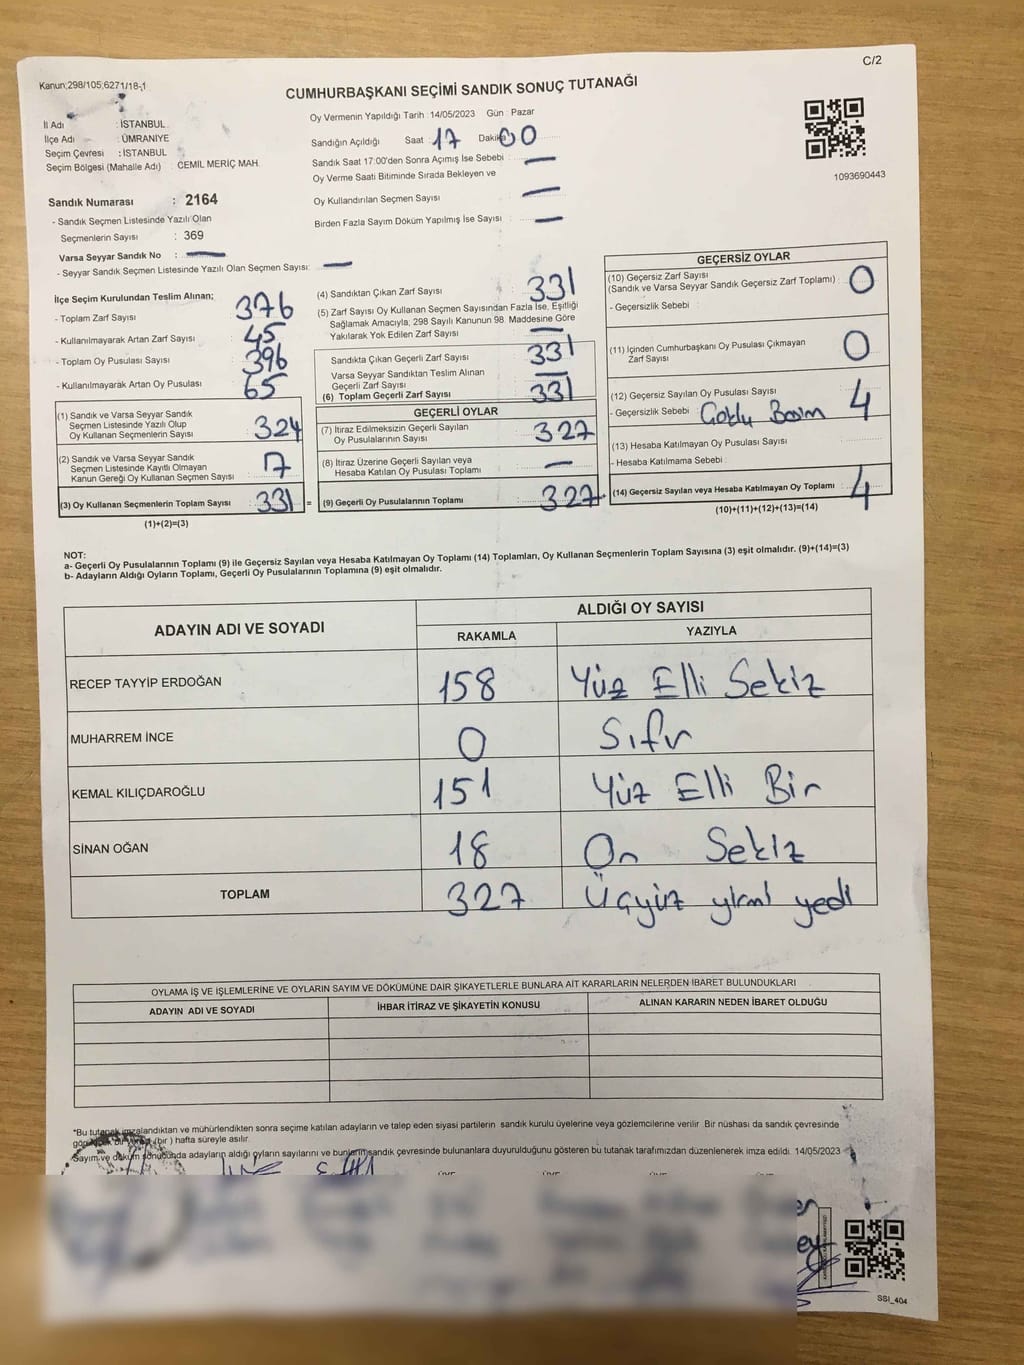 C/2
Kanun;298/105;6271/18-1
CUMHURBAŞKANI SEÇİMİ SANDIK SONUÇ TUTANAĞI
Oy Vermenin Yapıldığı Tarih :14/05/2023 Gün : Pazar
İl Adı : İSTANBUL
İlçe Adı : ÜMRANİYE
Seçim Çevresi : İSTANBUL
Seçim Bölgesi (Mahalle Adı) : CEMİL MERİÇ MAH.
Sandığın Açıldığı Saat : 17 Dakika 00
Sandık Saat 17:00'den Sonra Açımış İse Sebebi : —
Oy Verme Saati Bitiminde Sırada Bekleyen ve
Oy Kullandırılan Seçmen Sayısı : —
Birden Fazla Sayım Döküm Yapılmış İse Sayısı : —
1093690443
Sandık Numarası : 2164
- Sandık Seçmen Listesinde Yazılı Olan
Seçmenlerin Sayısı : 369
Varsa Seyyar Sandık No : —
- Seyyar Sandık Seçmen Listesinde Yazılı Olan Seçmen Sayısı: —
İlçe Seçim Kurulundan Teslim Alınan;
- Toplam Zarf Sayısı : 376
- Kullanılmayarak Artan Zarf Sayısı : 45
- Toplam Oy Pusulası Sayısı : 396
- Kullanılmayarak Artan Oy Pusulası : 65
(1) Sandık ve Varsa Seyyar Sandık
Seçmen Listesinde Yazılı Olup
Oy Kullanan Seçmenlerin Sayısı : 324
(2) Sandık ve Varsa Seyyar Sandık
Seçmen Listesinde Kayıtlı Olmayan
Kanun Gereği Oy Kullanan Seçmen Sayısı : 7
(3) Oy Kullanan Seçmenlerin Toplam Sayısı : 331 =
(1)+(2)=(3)
(4) Sandıktan Çıkan Zarf Sayısı : 331
(5) Zarf Sayısı Oy Kullanan Seçmen Sayısından Fazla İse, Eşitliği
Sağlamak Amacıyla; 298 Sayılı Kanunun 98. Maddesine Göre
Yakılarak Yok Edilen Zarf Sayısı : —
Sandıkta Çıkan Geçerli Zarf Sayısı : 331
Varsa Seyyar Sandıktan Teslim Alınan
Geçerli Zarf Sayısı : —
(6) Toplam Geçerli Zarf Sayısı : 331
GEÇERLİ OYLAR
(7) İtiraz Edilmeksizin Geçerli Sayılan
Oy Pusulalarının Sayısı : 327
(8) İtiraz Üzerine Geçerli Sayılan veya
Hesaba Katılan Oy Pusulası Toplamı : —
(9) Geçerli Oy Pusulalarının Toplamı : 327 +
GEÇERSİZ OYLAR
(10) Geçersiz Zarf Sayısı
(Sandık ve Varsa Seyyar Sandık Geçersiz Zarf Toplamı) : 0
- Geçersizlik Sebebi :
(11) İçinden Cumhurbaşkanı Oy Pusulası Çıkmayan
Zarf Sayısı : 0
(12) Geçersiz Sayılan Oy Pusulası Sayısı : 4
- Geçersizlik Sebebi :
(13) Hesaba Katılmayan Oy Pusulası Sayısı :
- Hesaba Katılmama Sebebi :
(14) Geçersiz Sayılan veya Hesaba Katılmayan Oy Toplamı : 4
(10)+(11)+(12)+(13)=(14)
NOT:
a- Geçerli Oy Pusulalarının Toplamı (9) ile Geçersiz Sayılan veya Hesaba Katılmayan Oy Toplamı (14) Toplamları, Oy Kullanan Seçmenlerin Toplam Sayısına (3) eşit olmalıdır. (9)+(14)=(3)
b- Adayların Aldığı Oyların Toplamı, Geçerli Oy Pusulalarının Toplamına (9) eşit olmalıdır.
ADAYIN ADI VE SOYADI
ALDIĞI OY SAYISI
RAKAMLA YAZIYLA
RECEP TAYYİP ERDOĞAN 158 Yüz Elli Sekiz
MUHARREM İNCE 0 Sıfır
KEMAL KILIÇDAROĞLU 151 Yüz Elli Bir
SİNAN OĞAN 18 On Sekiz
TOPLAM 327 Üçyüz yirmi yedi
OYLAMA İŞ VE İŞLEMLERİNE VE OYLARIN SAYIM VE DÖKÜMÜNE DAİR ŞİKAYETLERLE BUNLARA AİT KARARLARIN NELERDEN İBARET BULUNDUKLARI
ADAYIN ADI VE SOYADI İHBAR İTİRAZ VE ŞİKAYETİN KONUSU ALINAN KARARIN NEDEN İBARET OLDUĞU
*Bu tutanak imzalandıktan ve mühürlendikten sonra seçime katılan adayların ve talep eden siyasi partilerin sandık kurulu üyelerine veya gözlemcilerine verilir. Bir nüshası da sandık çevresinde
görülecek bir yere (bir) hafta süreyle asılır.
Sayım ve döküm sonucunda adayların aldığı oyların sayılarını ve bunların sandık çevresinde bulunanlara duyurulduğunu gösteren bu tutanak tarafımızdan düzenlenerek imza edildi. 14/05/2023
SSI_404